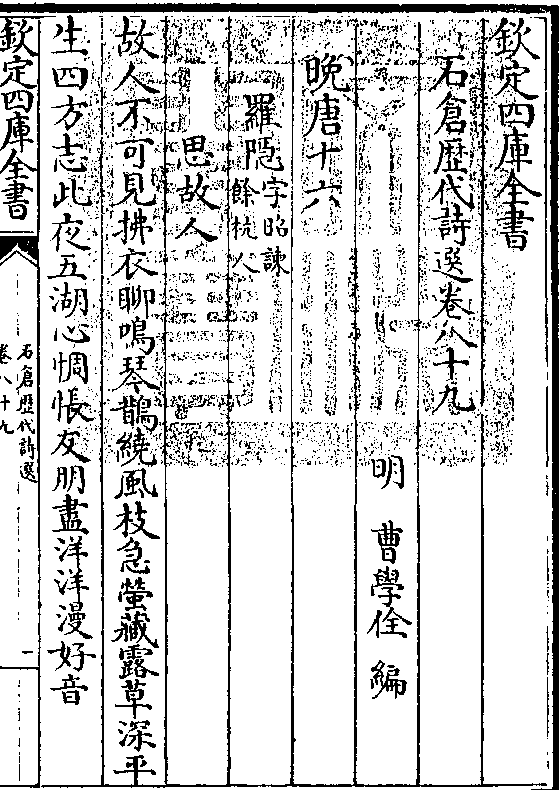 欽定四庫全書
石倉歴代詩選卷八十九
明 曹學佺 編
晩唐十六
羅隱字昭諫餘杭人
思故人
故人不可見拂衣聊鳴琴鵲繞風枝急螢藏露草深平
生四方志此夜五湖心惆悵友朋盡洋洋漫好音
欽定四庫全書
石倉歴代詩選
卷八十九
一